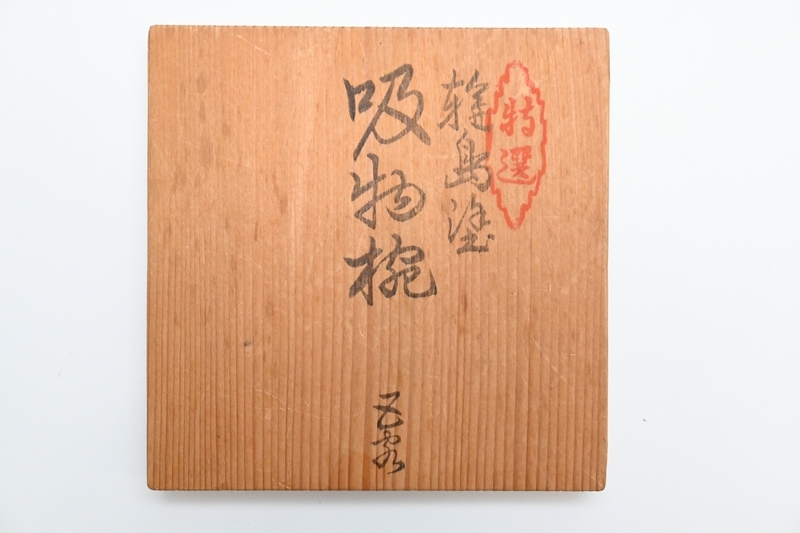 特選
輪島塗
吸物椀
五客